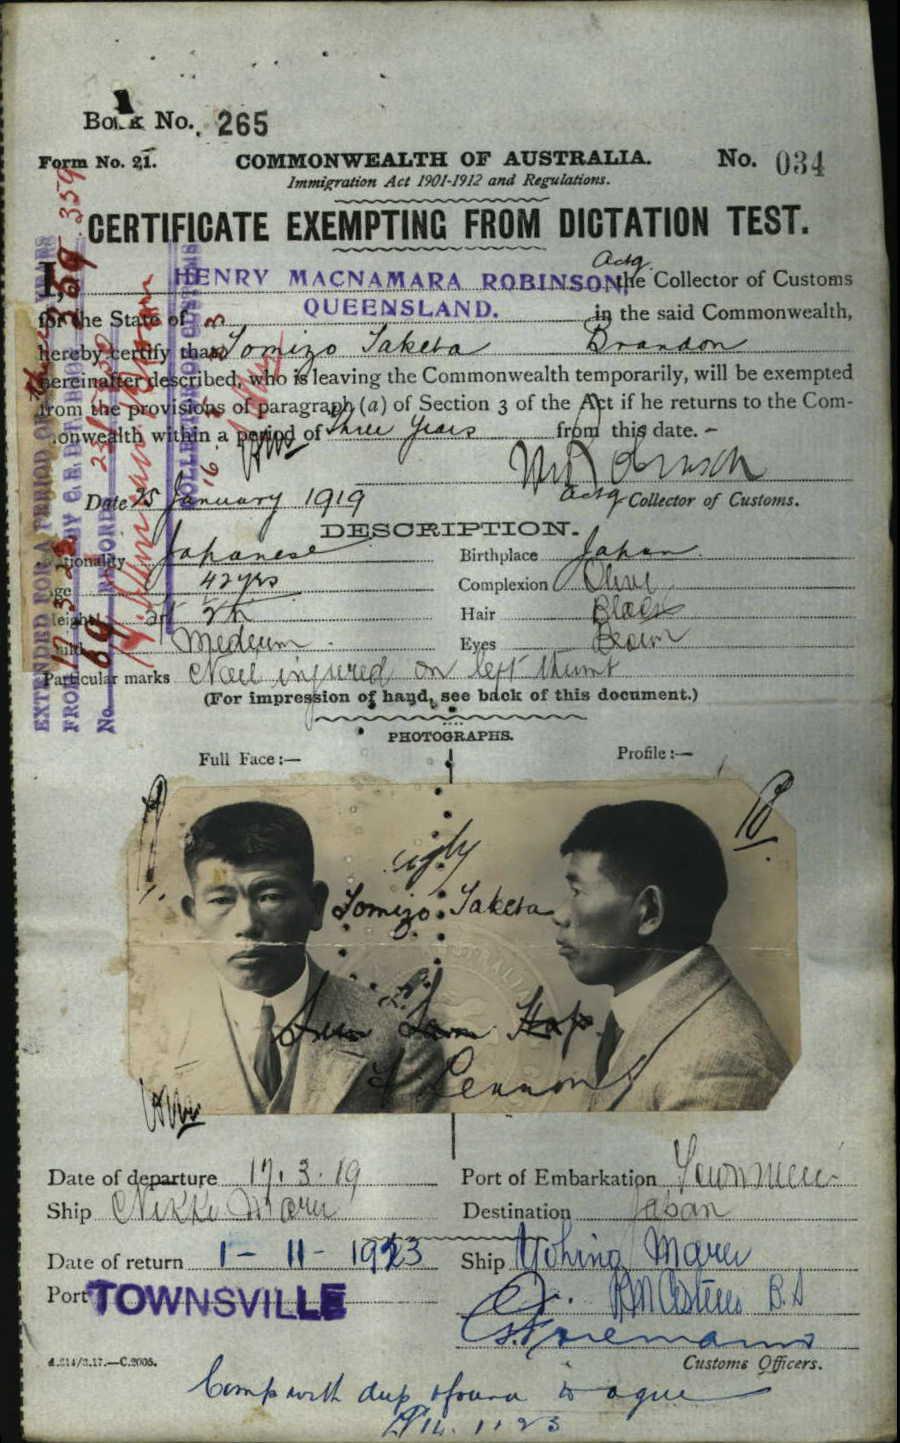 Book No. 265
Form No. 21. COMMONWEALTH OF AUSTRALIA. No. 034
Immigration Act 1901-1912 and Regulations.
CERTIFICATE EXEMPTING FROM DICTATION TEST.
Actg.
I, HENRY MACNAMARA ROBINSON, the Collector of Customs
for the State of QUEENSLAND. in the said Commonwealth,
hereby certify that Tomizo Taketa Brandon
hereinafter described, who is leaving the Commonwealth temporarily, will be exempted
from the provisions of paragraph (a) of Section 3 of the Act if he returns to the Com-
monwealth within a period of Three Years from this date.
Date 25 January 1919 Actg Collector of Customs.
DESCRIPTION.
Nationality Japanese Birthplace Japan
Age 42 yrs Complexion Olive
Height 5ft 2in Hair Black
Build Medium Eyes Brown
Particular marks Nail injured on left thumb
(For impression of hand, see back of this document.)
PHOTOGRAPHS.
Full Face:— Profile:—
Tomizo Taketa
Lennon
Date of departure 17.3.19 Port of Embarkation Townsville
Ship Nikko Maru Destination Japan
Date of return 1-11-1923 Ship Maru
Port TOWNSVILLE
Customs Officers.
Comp with dup & found to agree
EXTENDED FOR A PERIOD OF YEARS
FROM
No
COLLECTOR OF CUSTOMS